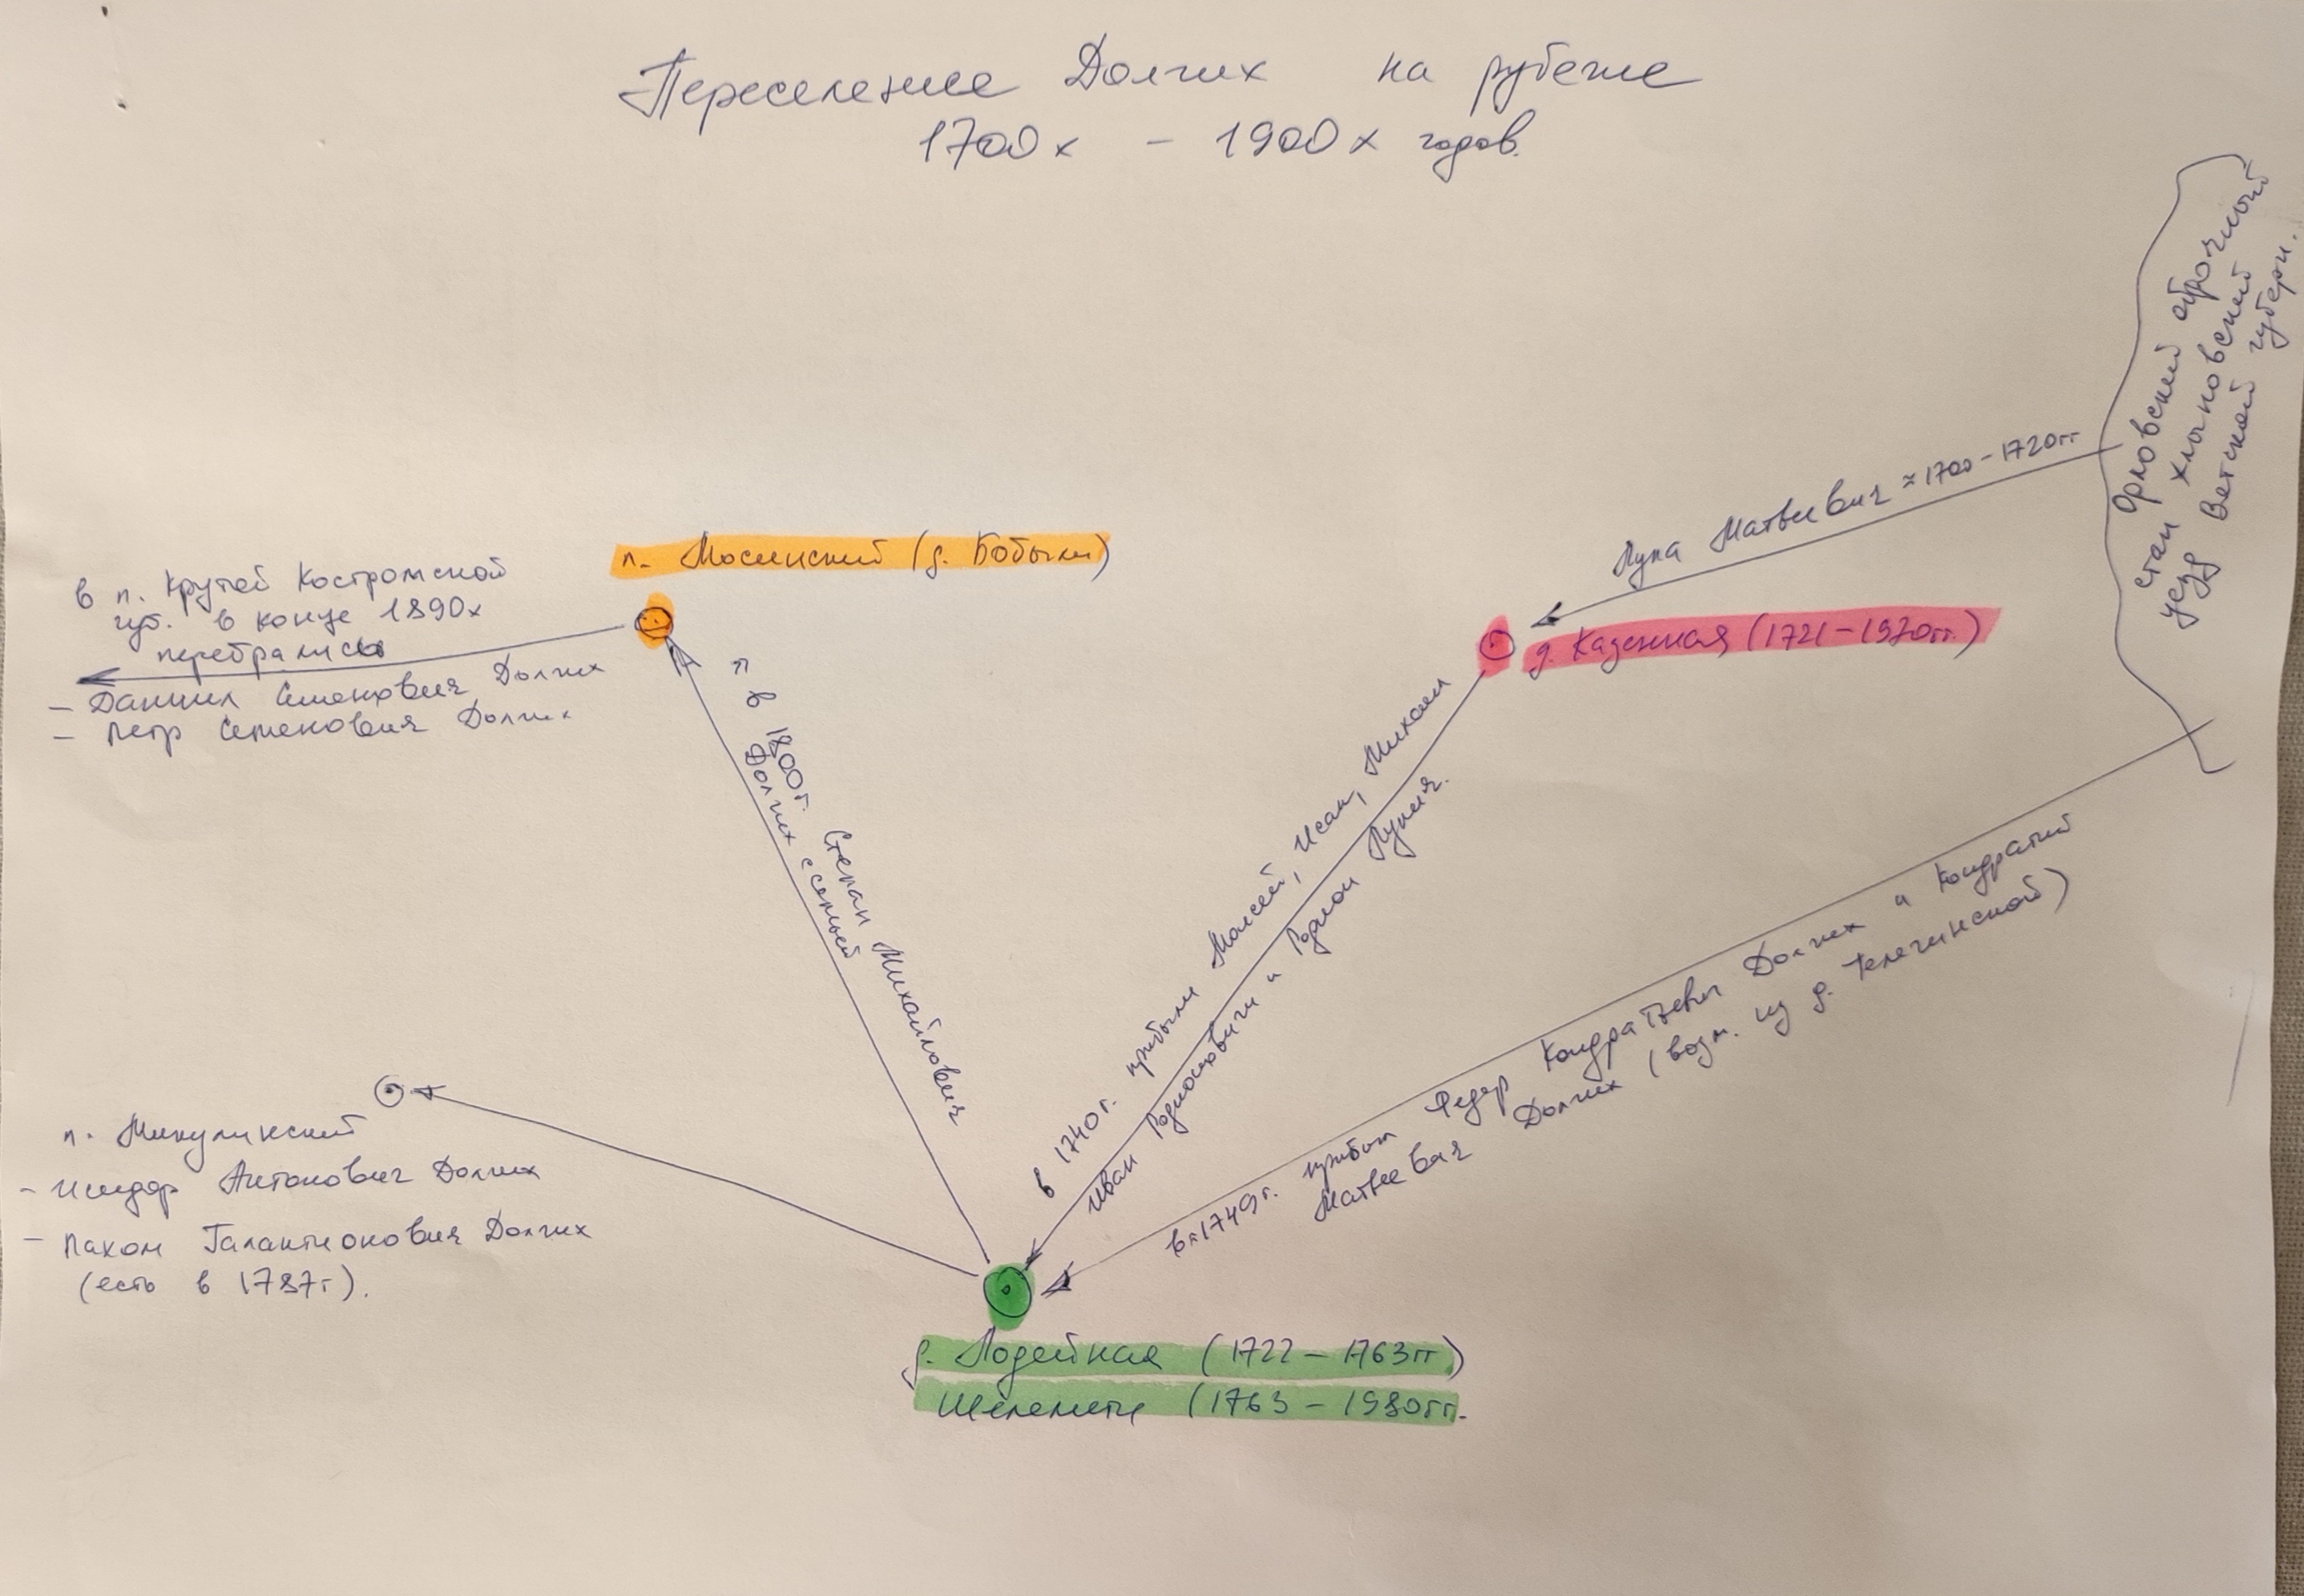 Переселение Долгих на рубеже
1700х - 1900х годов.
Орловский оброчный
стан Хлыновский
уезд Вятской губерн.
Лука Матвеевич ≈ 1700 - 1720гг
п. Мосинский (д. Бобыли)
д. Казенная (1721 - 1970гг.)
в п. Крутой Костромской
губ. в конце 1890х
перебрались
- Даниил Семенович Долгих
- Петр Семенович Долгих
≈ в 1800г. Степан Михайлович
Долгих с семьей
в 1740г. прибыли Моисей, Исаак, Михаил
Иван Родионовичи и Родион Лукич.
в 1749г. прибыл Федор Кондратьевич Долгих и Кондратий
Матвеевич Долгих (возм. из д. Телегинской)
п. Микулинский
- Исидор Антонович Долгих
- Пахом Галактионович Долгих
(есть в 1787г).
д. Лодейная (1722 - 1763гг)
Шелемети (1763 - 1980гг.